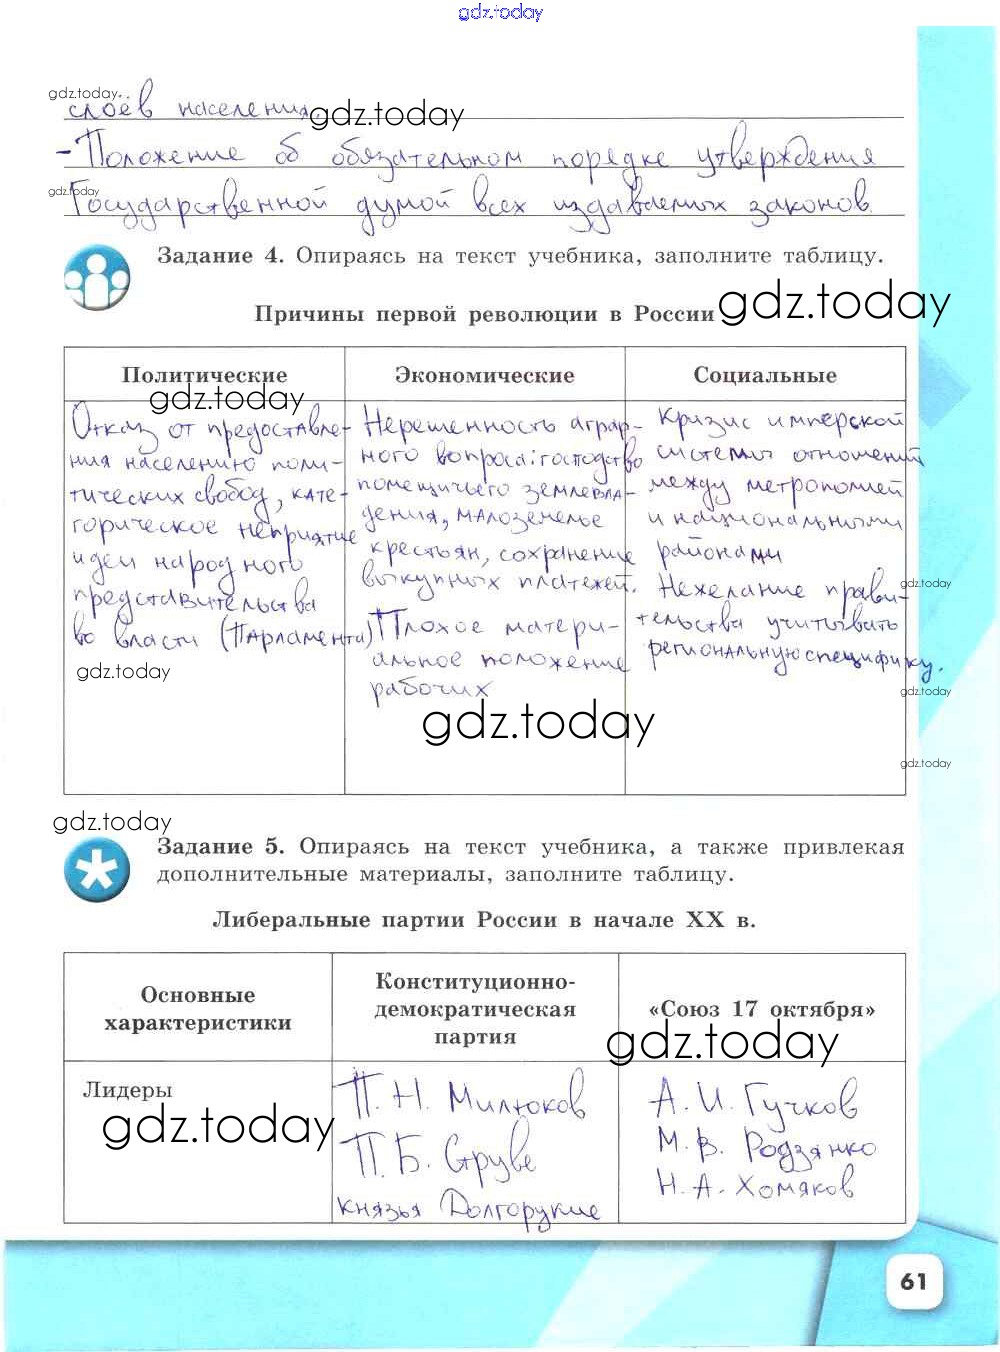 gdz.today
gdz.today
слоев населения.
gdz.today
- Положение об обязательном порядке утверждения
gdz.today
Государственной думой всех издаваемых законов.
Задание 4. Опираясь на текст учебника, заполните таблицу.
Причины первой революции в России
gdz.today
Политические
Экономические
Социальные
gdz.today
Отказ от предоставле-
ния населению поли-
тических свобод, кате-
горическое неприятие
идеи народного
представительства
во власти (Парламента)
gdz.today
Нерешенность аграр-
ного вопроса: господство
помещичьего землевла-
дения, малоземелье
крестьян, сохранение
выкупных платежей.
Плохое матери-
альное положение
рабочих
gdz.today
Кризис имперской
системы отношений
между метрополией
и национальными
районами
gdz.today
Нежелание прави-
тельства учитывать
региональную специфику.
gdz.today
gdz.today
gdz.today
Задание 5. Опираясь на текст учебника, а также привлекая
дополнительные материалы, заполните таблицу.
Либеральные партии России в начале XX в.
Основные
характеристики
Конституционно-
демократическая
партия
«Союз 17 октября»
gdz.today
Лидеры
gdz.today
П. Н. Милюков
П. Б. Струве
князья Долгорукие
А. И. Гучков
М. В. Родзянко
Н. А. Хомяков
61